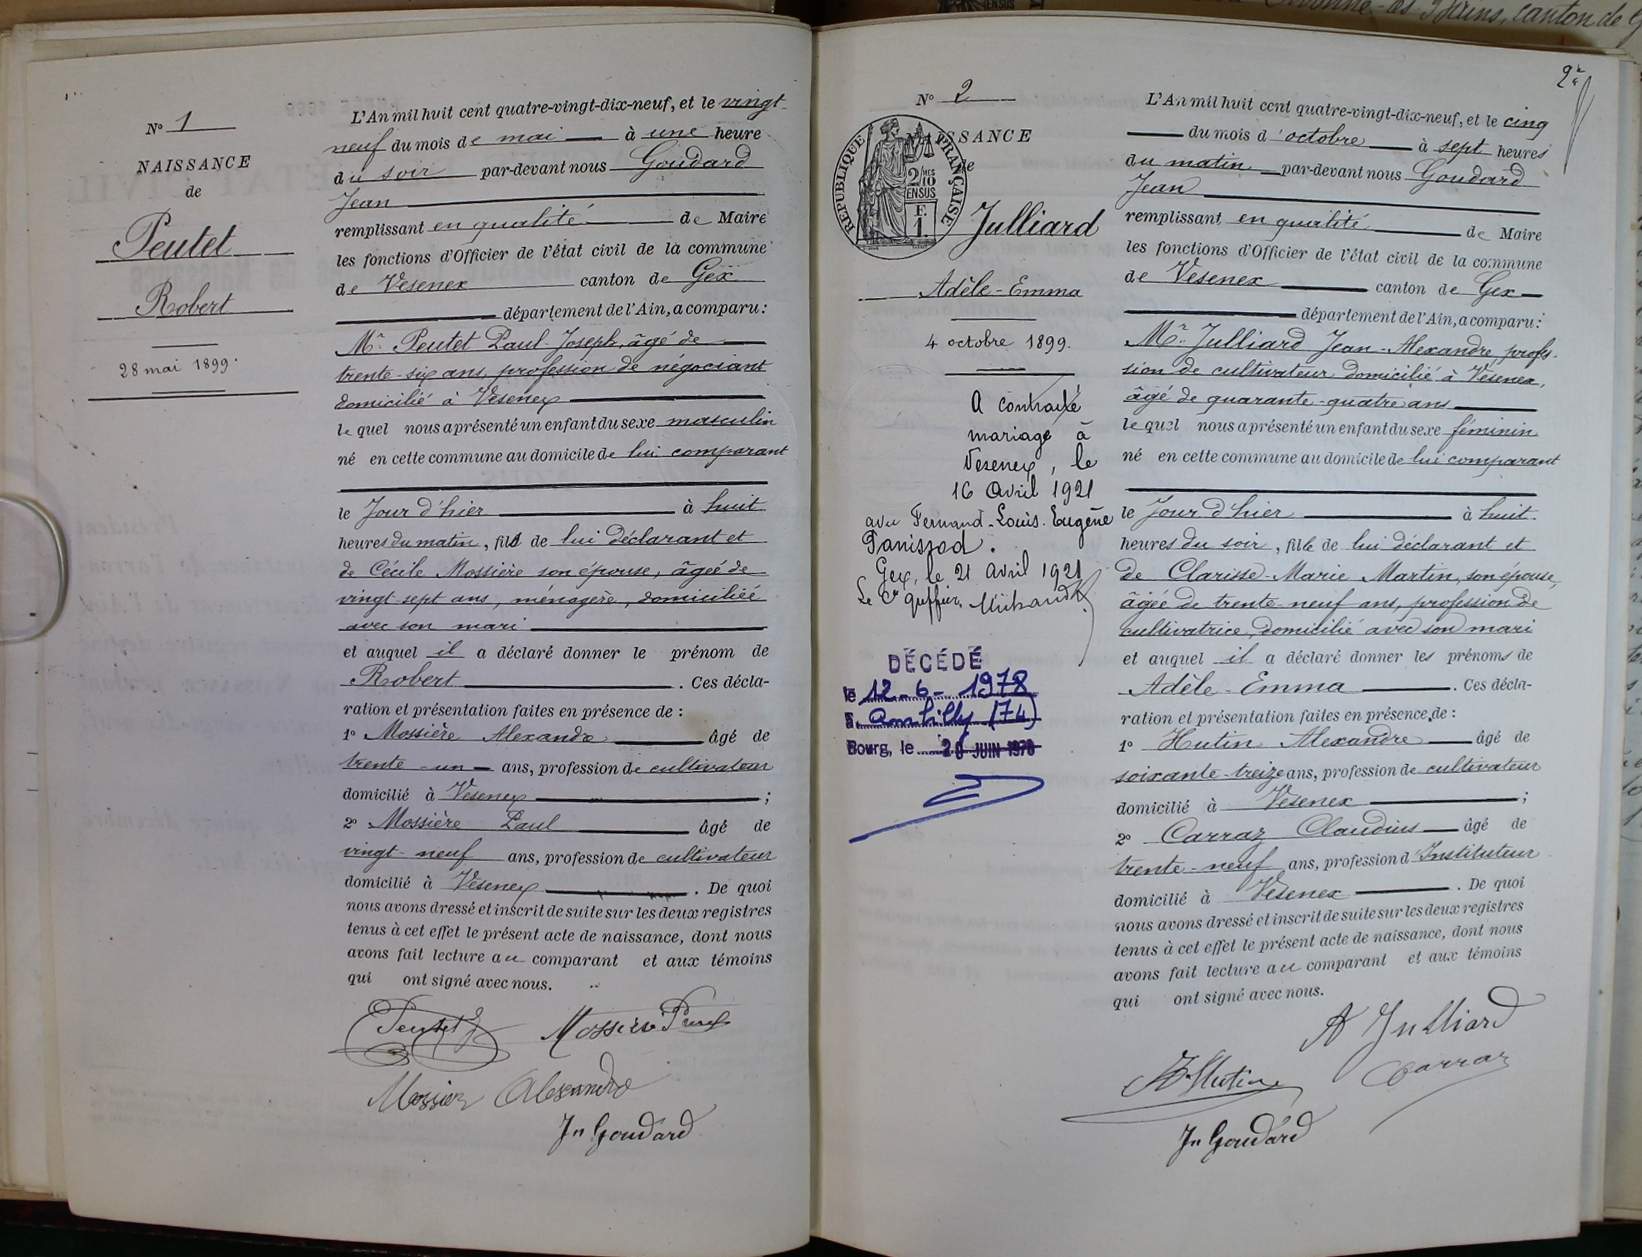 N° 1
NAISSANCE
de
Peutet
Robert
28 mai 1899.
L'An mil huit cent quatre-vingt-dix-neuf, et le vingt-
neuf du mois de mai à une heure
du soir par-devant nous Goudard
Jean
remplissant en qualité de Maire
les fonctions d'Officier de l'état civil de la commune
de Vésenex canton de Gex
département de l'Ain, a comparu :
Mr. Peutet Paul-Joseph, âgé de
trente-six ans, profession de négociant
domicilié à Vésenex
le quel nous a présenté un enfant du sexe masculin
né en cette commune au domicile de lui comparant
le Jour d'hier à huit
heures du matin, fils de lui déclarant et
de Cécile Mossière son épouse, âgée de
vingt sept ans, ménagère, domiciliée
avec son mari
et auquel il a déclaré donner le prénom de
Robert . Ces décla-
ration et présentation faites en présence de :
1° Mossière Alexandre âgé de
trente-un ans, profession de cultivateur
domicilié à Vésenex ;
2° Mossière Paul âgé de
vingt-neuf ans, profession de cultivateur
domicilié à Vésenex . De quoi
nous avons dressé et inscrit de suite sur les deux registres
tenus à cet effet le présent acte de naissance, dont nous
avons fait lecture au comparant et aux témoins
qui ont signé avec nous.
Peutet Mossière Paul
Mossier Alexandre
Jn Goudard
2e
N° 2
NAISSANCE
de
RÉPUBLIQUE FRANÇAISE
2/10 EN SUS
F. 1
Julliard
Adèle-Emma
4 octobre 1899.
A contracté
mariage à
Vesenex, le
16 Avril 1921
avec Fernand-Louis-Eugène
Panissod.
Gex, le 21 Avril 1921
Le Cis Greffier, Michaud
DÉCÉDÉ
le 12-6-1978
à Ambilly (74)
Bourg, le 20 JUIN 1978
L'An mil huit cent quatre-vingt-dix-neuf, et le cinq
du mois d'octobre à sept heures
du matin par-devant nous Goudard
Jean
remplissant en qualité de Maire
les fonctions d'Officier de l'état civil de la commune
de Vésenex canton de Gex
département de l'Ain, a comparu :
Mr. Julliard Jean-Alexandre, profes-
sion de cultivateur domicilié à Vésenex,
âgé de quarante-quatre ans
le quel nous a présenté un enfant du sexe féminin
né en cette commune au domicile de lui comparant
le Jour d'hier à huit
heures du soir, fille de lui déclarant et
de Clarisse-Marie Martin, son épouse,
âgée de trente-neuf ans, profession de
cultivatrice, domicilié avec son mari
et auquel il a déclaré donner les prénoms de
Adèle-Emma . Ces décla-
ration et présentation faites en présence de :
1° Hutin Alexandre âgé de
soixante-treize ans, profession de cultivateur
domicilié à Vésenex ;
2° Carraz Claudius âgé de
trente-neuf ans, profession d'Instituteur
domicilié à Vésenex . De quoi
nous avons dressé et inscrit de suite sur les deux registres
tenus à cet effet le présent acte de naissance, dont nous
avons fait lecture au comparant et aux témoins
qui ont signé avec nous.
A Julliard
A. Hutin Carraz
Jn Goudard